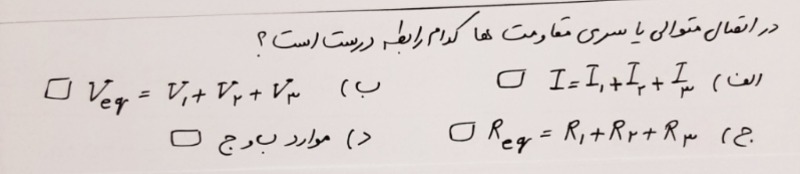 در اتصال متوالی یا سری مقاومت ها کدام رابطه درست است؟
الف) I = I₁ + I₂ + I₃ □ ب) V_eq = V₁ + V₂ + V₃ □
ج) R_eq = R₁ + R₂ + R₃ □ د) موارد ب و ج □